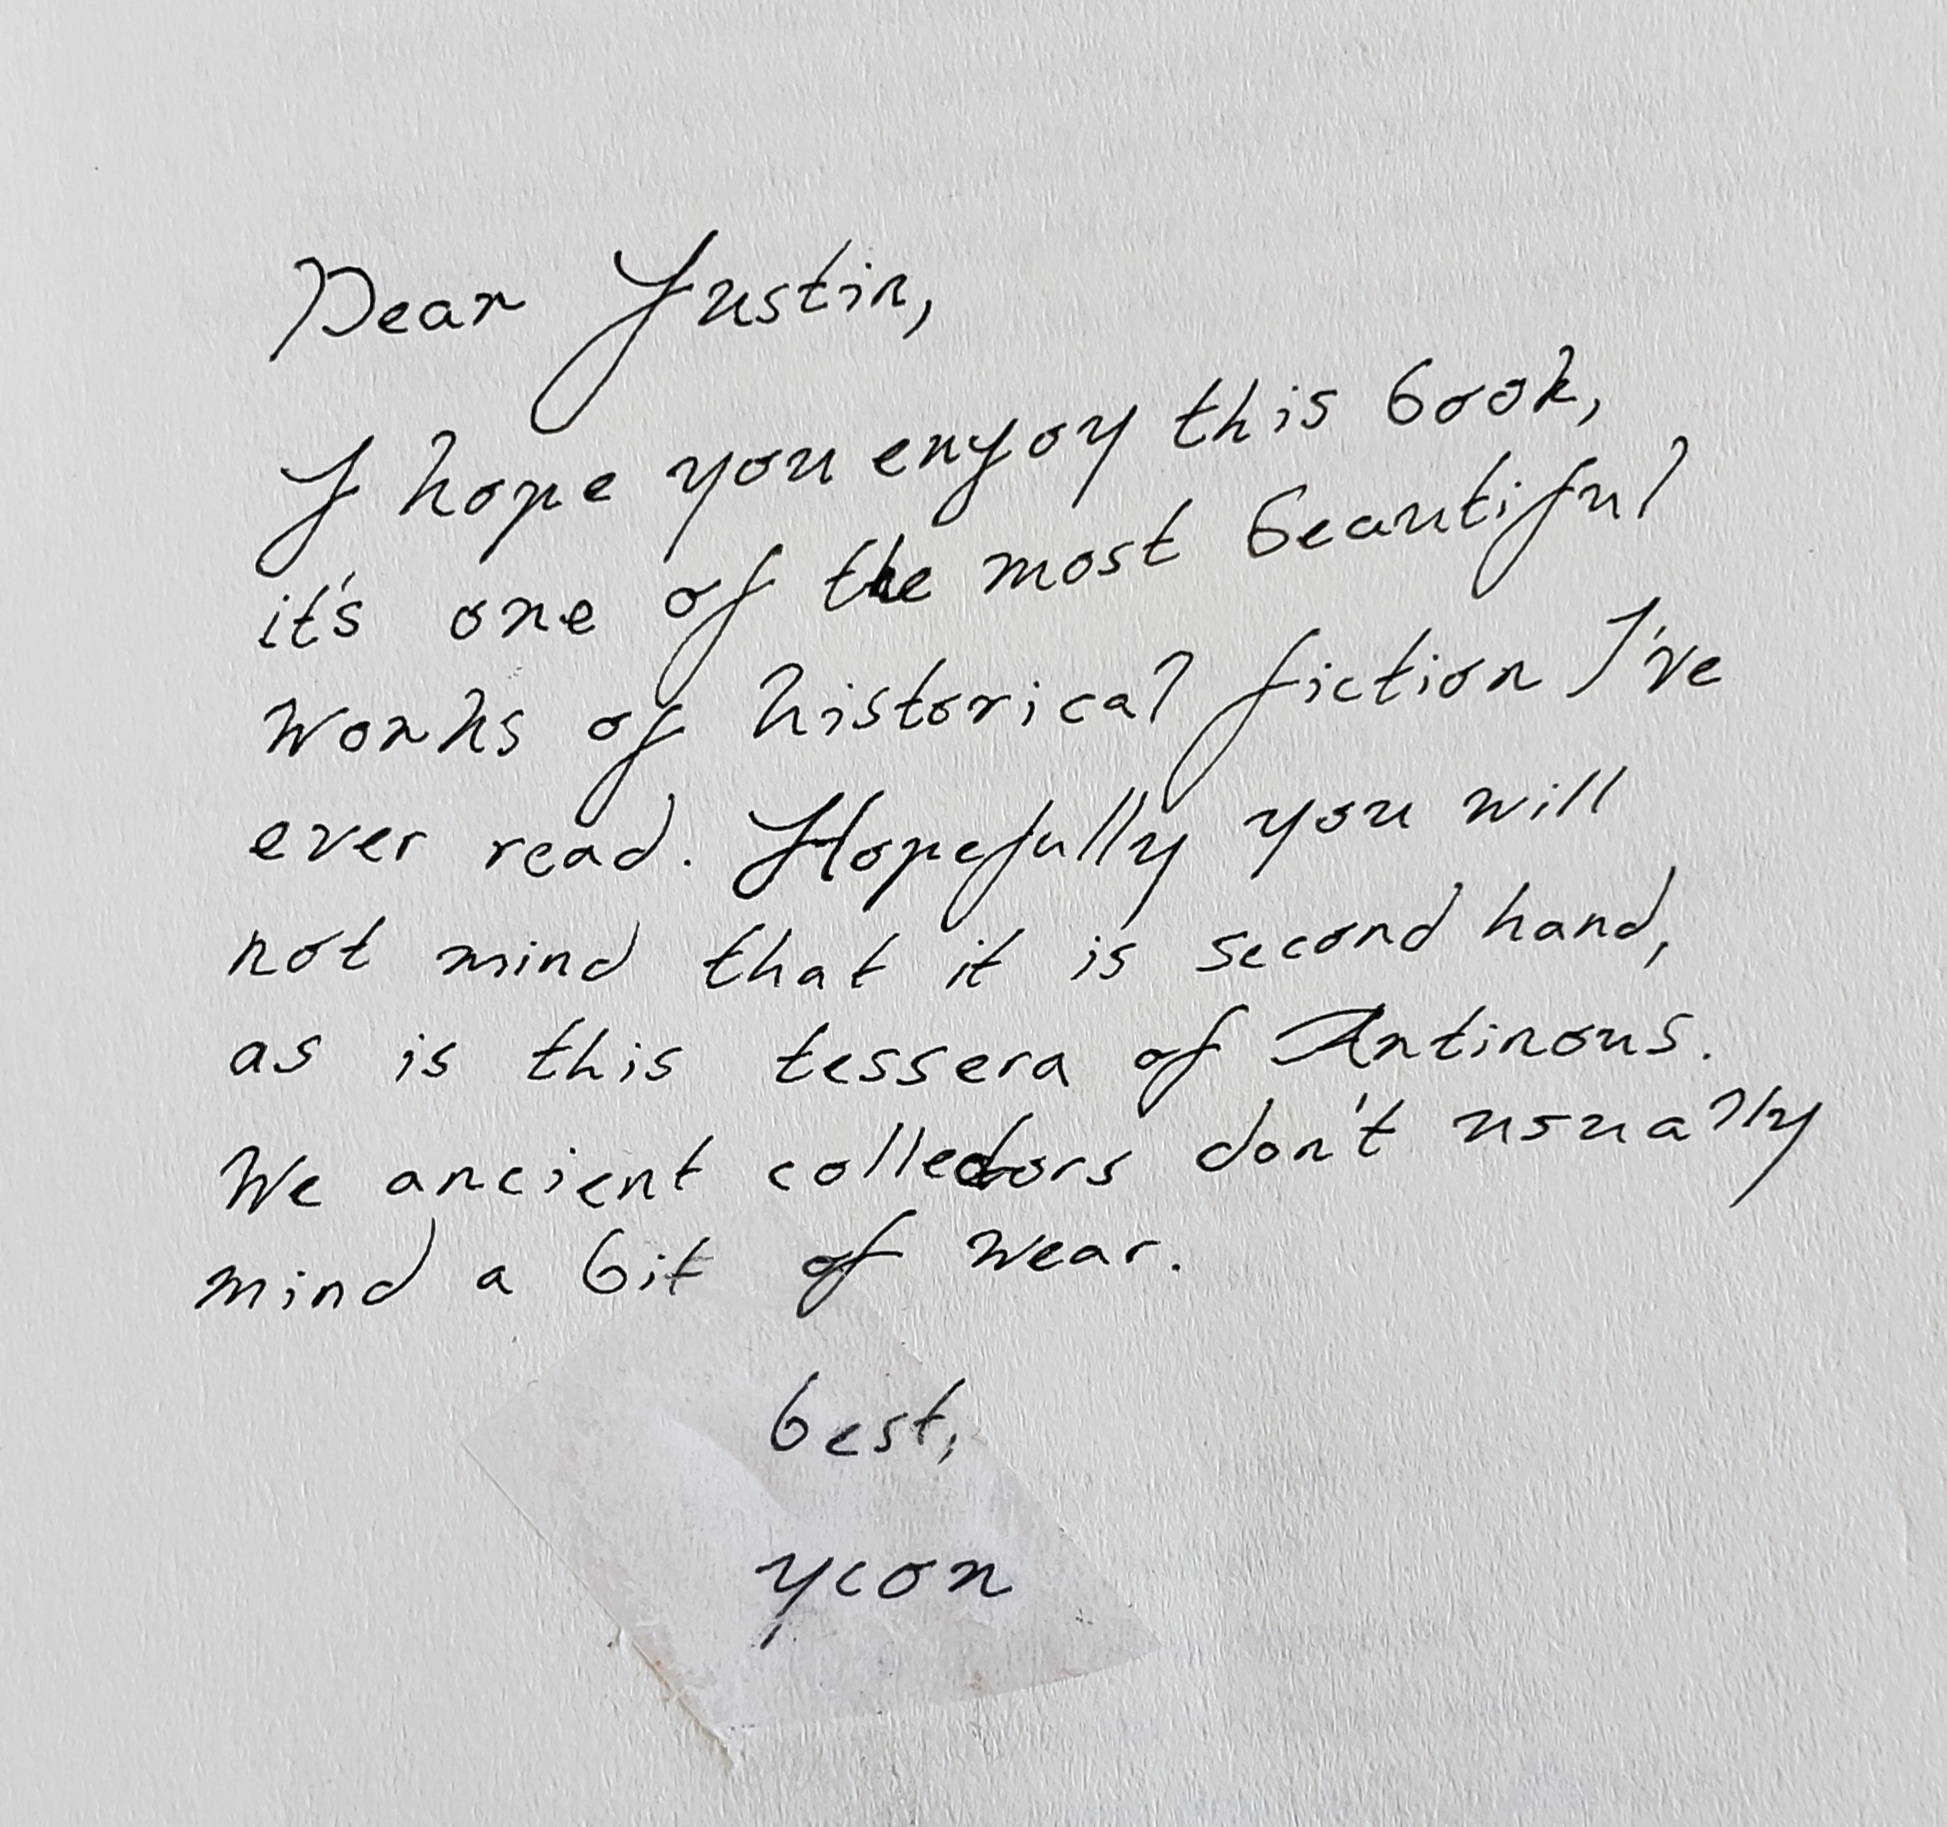 Dear Justin,
I hope you enjoy this book,
it's one of the most beautiful
works of historical fiction I've
ever read. Hopefully you will
not mind that it is second hand,
as is this tessera of Antinous.
We ancient collectors don't usually
mind a bit of wear.
best,
ycon